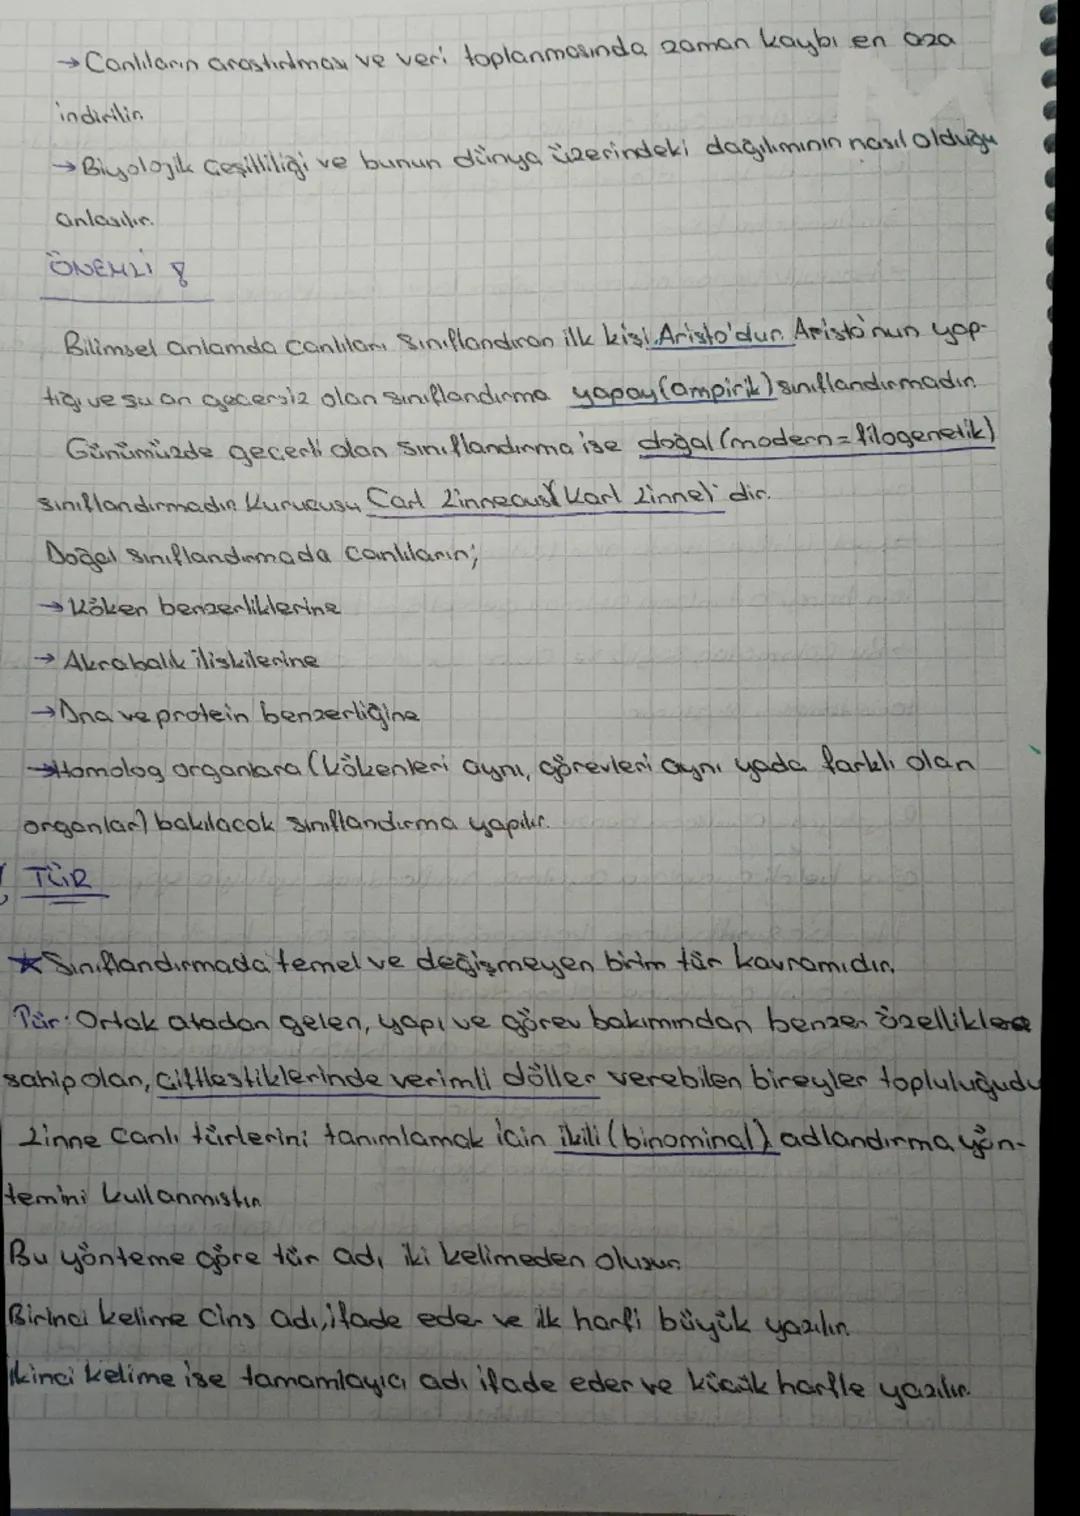 → Canlıların araştırılması ve veri toplanmasında zaman kaybı en aza
indirilir.
→ Biyolojik çeşitliliği ve bunun dünya üzerindeki dağılımının nasıl olduğu
anlaşılır.
ÖNEMLİ
Bilimsel anlamda canlıları sınıflandıran ilk kişi Aristo'dur. Aristo'nun yap-
tığı ve şu an geçersiz olan sınıflandırma yapay (ampirik) sınıflandırmadır.
Günümüzde geçerli olan sınıflandırma ise doğal (modern = filogenetik)
sınıflandırmadır. Kurucusu Carl Linneaus (Karl Linne)' dir.
Doğal sınıflandırmada canlıların;
→ Köken benzerliklerine
→ Akrabalık ilişkilerine
→ Dna ve protein benzerliğine
→ Homolog organlara (kökenleri aynı, görevleri aynı yada farklı olan
organlar) bakılacak sınıflandırma yapılır.
TÜR
★ Sınıflandırmada temel ve değişmeyen birim tür kavramıdır.
Tür: Ortak atadan gelen, yapı ve görev bakımından benzer özelliklere
sahip olan, çiftleştiklerinde verimli döller verebilen bireyler topluluğudu
Linne canlı türlerini tanımlamak için ikili (binominal) adlandırma yön-
temini kullanmıştır.
Bu yönteme göre tür adı iki kelimeden oluşur.
Birinci kelime cins adı, ifade eder ve ilk harfi büyük yazılır.
İkinci kelime ise tamamlayıcı adı ifade eder ve küçük harfle yazılır.